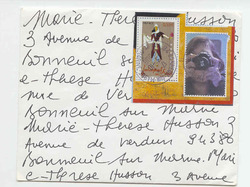 Marie-Therese Husson
3 Avenue de
Bonneuil su
e-Therese Hu
nue de Ver
Bonneuil sur Marne
Marie-Therese Husson 3
Avenue de verdun 94380
Bonneuil sur Marne. Mari
e-Therese Husson 3 Avenue